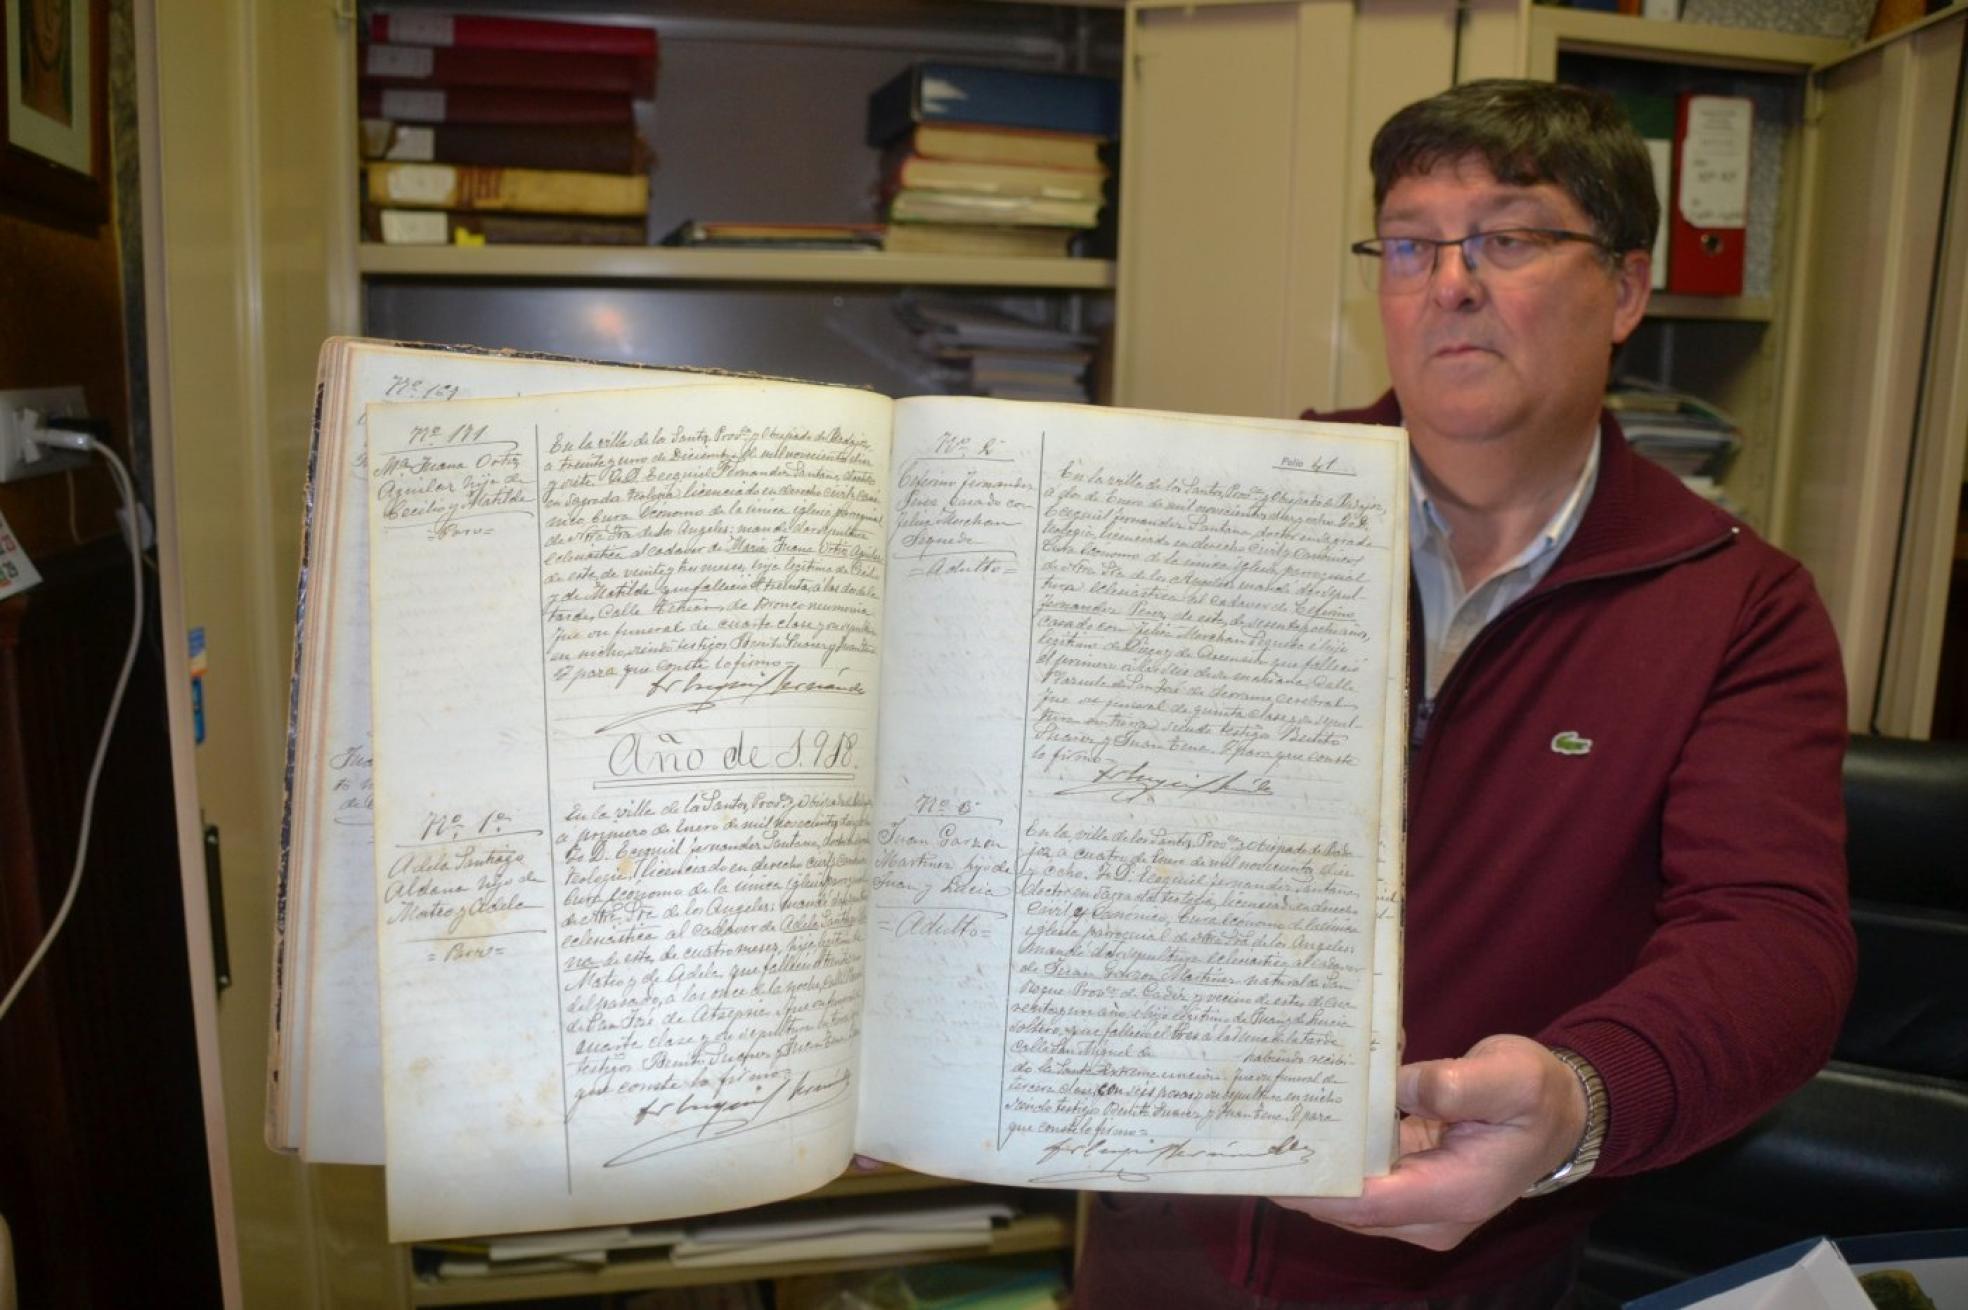 Nº 169
Nº 171
Mª Juana Ortiz
Aguilar hija de
Cecilio y Matilde
=Parv=
En la villa de los Santos, Provª y Obispado de Badajoz,
a treinta y uno de Diciembre de mil novecientos diez
y siete Yo D. Ezequiel Fernandez Santana, doctor
en Sagrada teologia, licenciado en derecho civil y canó-
nico, Cura Económo de la única iglesia parroquial
de Ntra Sra de los Angeles; mandé dar sepultura
eclesiástica al cadaver de Maria Juana Ortiz Aguilar
de esta, de veinte y tres meses, hija legitima de Cecilio
y de Matilde que falleció el treinta, a las dos de la
tarde, Calle de Bronconeumonia
fue su funeral de cuarta clase y su sepultura
en nicho, siendo testigos Benito Suarez y Juan Tena
Y para que conste lo firmo=
Ezequiel Fernández
Año de 1.918.
Nº 1º
Adela Santiago
Aldana hija de
Mateo y Adela
=Parv=
En la villa de los Santos, Provª y Obispado de
a primero de Enero de mil novecientos diez y
Yo D. Ezequiel Fernandez Santana, doctor
teologia, licenciado en derecho civil y canónico
Cura económo de la única iglesia parroquial
de Ntra Sra de los Angeles; mandé dar sepultura
eclesiástica al cadaver de Adela Santiago
na de esta, de cuatro meses, hija legitima de
Mateo y de Adela, que falleció el treinta
del pasado, a las once de la noche, calle
de San José de Atrepsia. Fue su funeral
cuarta clase y su sepultura en tierra
testigos Benito Suarez y Juan Tena
que conste lo firmo=
Ezequiel Fernández
Folio 41
Nº 2
Ceferino Fernandez
Perez casado con
Felix Merchan
Sequede
=Adulto=
En la villa de los Santos, Provª y Obispado de Badajoz,
a dos de Enero de mil novecientos diez y ocho. Yo D.
Ezequiel Fernandez Santana, doctor en Sagrada
teologia, licenciado en derecho civil y canónico,
Cura Económo de la única iglesia parroquial
de Ntra Sra de los Angeles; mandé dar sepul-
tura eclesiástica al cadaver de Ceferino
Fernandez Perez, de esta, de sesenta y ocho años,
casado con Felix Merchan Sequede e hijo
legitimo de Diego y de Ascension que falleció
el primero a las seis de la mañana, Calle
Fuente de San José de derrame cerebral
Fue su funeral de quinta clase y su sepul-
tura en tierra siendo testigos Benito
Suarez y Juan Tena. Y para que conste
lo firmo=
Ezequiel Fernández
Nº 3
Juan Garzon
Martinez hijo de
Juan y Lucia
=Adulto=
En la villa de los Santos, Provª y Obispado de Bada-
joz, a cuatro de Enero de mil novecientos diez
y ocho. Yo D. Ezequiel Fernandez Santana,
doctor en Sagrada teologia, licenciado en derecho
civil y Canónico, Cura Económo de la única
iglesia parroquial de Ntra Sra de los Angeles;
mandé dar sepultura eclesiástica al cadaver
de Juan Garzon Martinez natural de San
Roque Provª de Cadiz y vecino de esta de cua-
renta y un año, e hijo legitimo de Juan y de Lucia
soltero, que falleció el tres a la una de la tarde
Calle San Miguel de habiendo recibi-
do la Santa Extremauncion. Fue su funeral de
tercera clase con seis posas y su sepultura en nicho
siendo testigos Benito Suarez y Juan Tena. Y para
que conste lo firmo=
Ezequiel Fernández